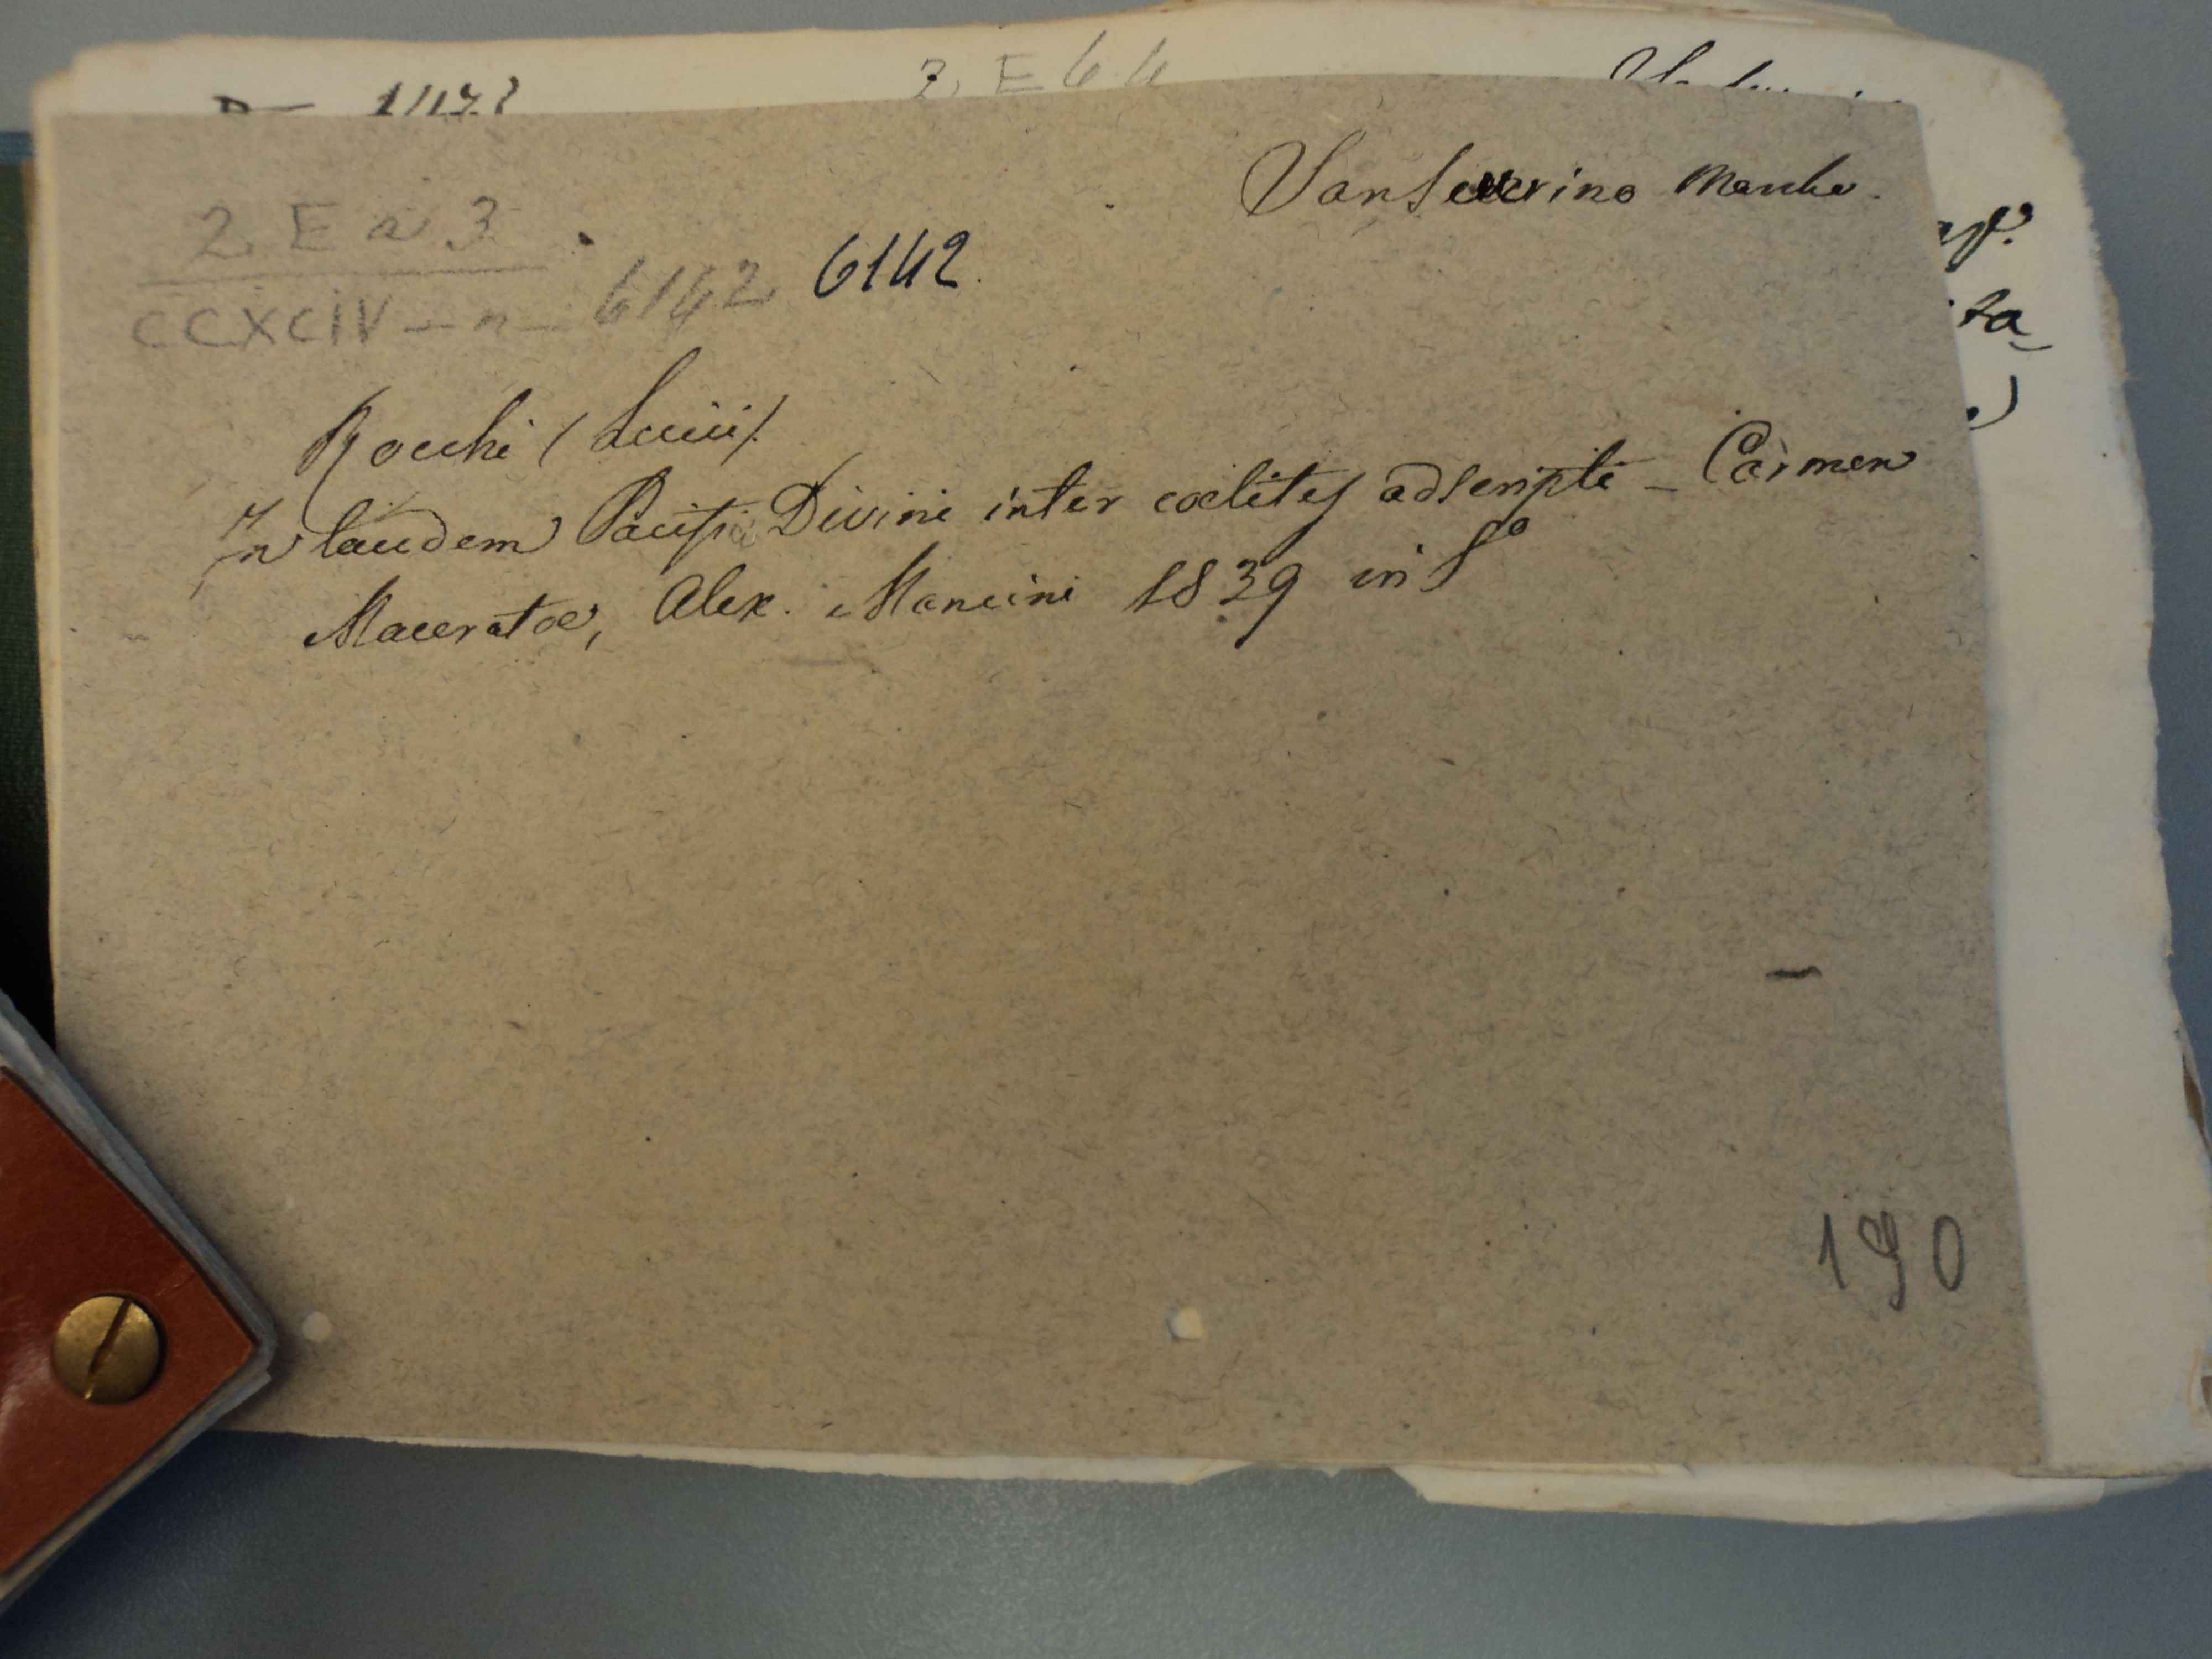 2 E
SanSeverino Marche.
2 E a 3
CCXCIV - n - 6142 6142.
Rocchi (Lucii).
In laudem Pacifici Divini inter coelites adscripti - Carmen
Maceratae, Alex. Mancini 1839 in 8º
190